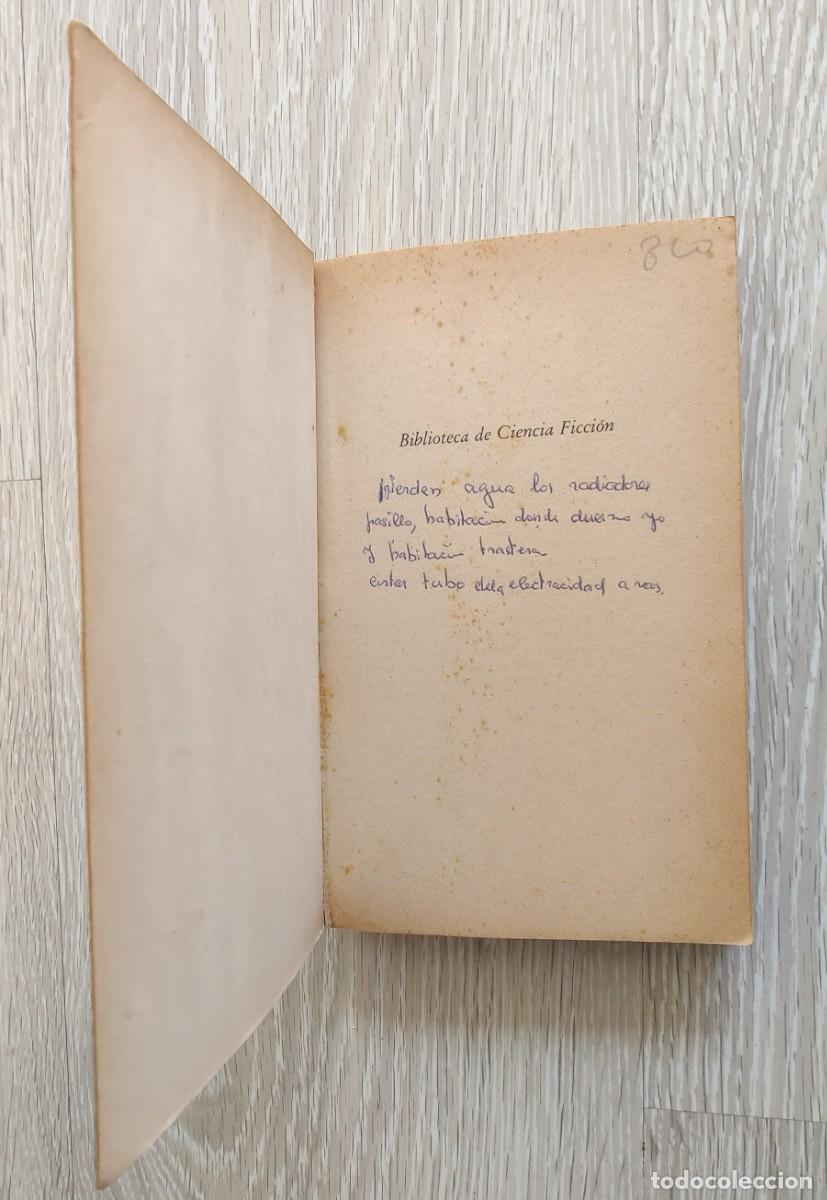 Biblioteca de Ciencia Ficción
pierden agua los radiadores
pasillo, habitación donde duermo yo
y habitación trastera
tubo de la electricidad
todocoleccion